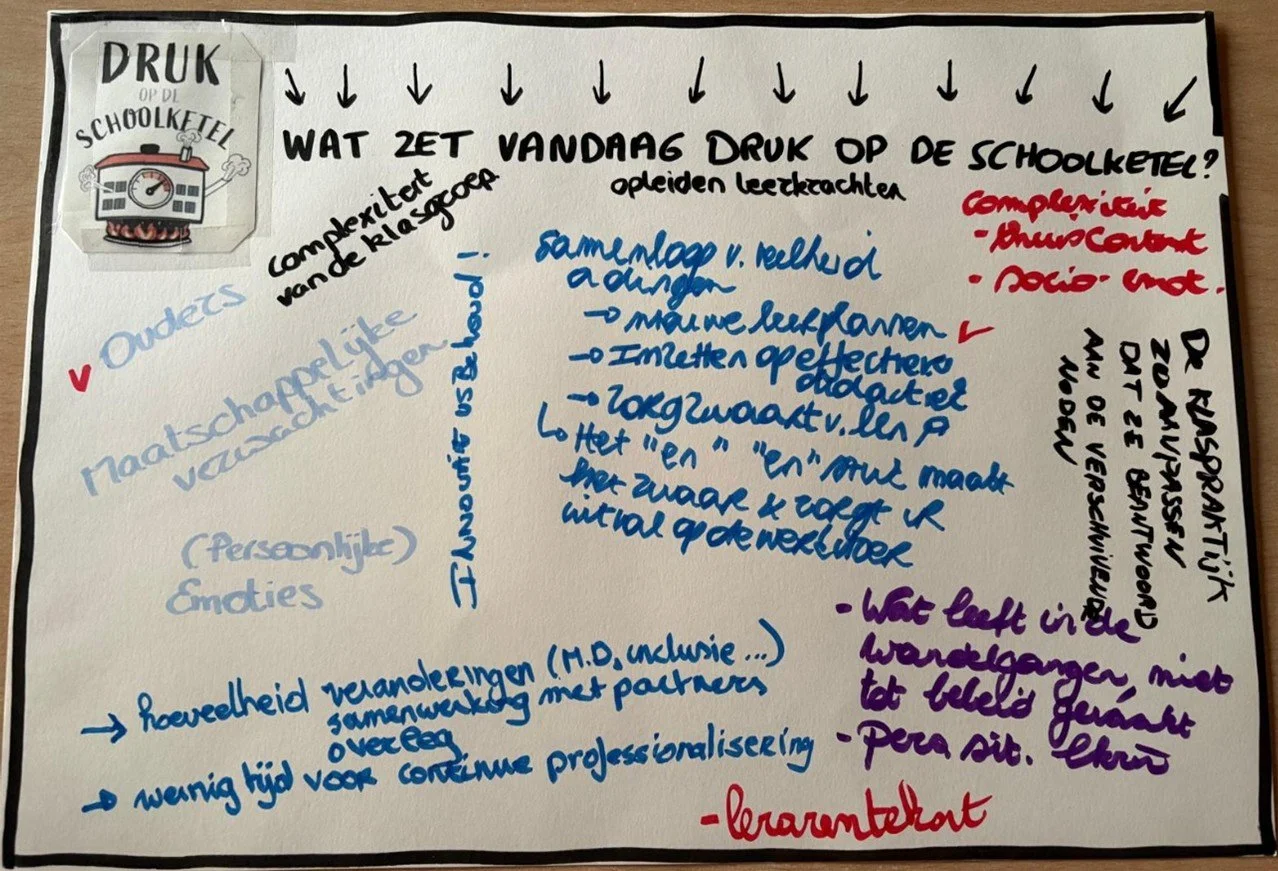 DRUK
OP DE
SCHOOLKETEL
WAT ZET VANDAAG DRUK OP DE SCHOOLKETEL?
opleiden leerkrachten
complexiteit
van de klasgroep
complexiteit
- thuiscontext
- socio-emot.
Ouders
Maatschappelijke
verwachtingen
(Persoonlijke)
Emoties
Innovatie vs Behoud!
samenloop v. veelheid
a dingen
→ nieuwe leerplannen
→ Inzetten op effectieve
didactiek
→ Zorgzwaarte v. lln
↳ Het "en" "en" stuk maakt
het zwaar & zorgt vr
uitval op de werkvloer
DE KLASPRAKTIJK
ZO AANPASSEN
DAT ZE BEANTWOORD
AAN DE VERSCHILLENDE
NODEN
→ hoeveelheid veranderingen (M.D, inclusie ...)
samenwerking met partners
overleg
→ weinig tijd voor continue professionalisering
- Wat leeft in de
wandelgangen, niet
tot beleid geraakt
- Pers sit. lkrn
- lerarentekort